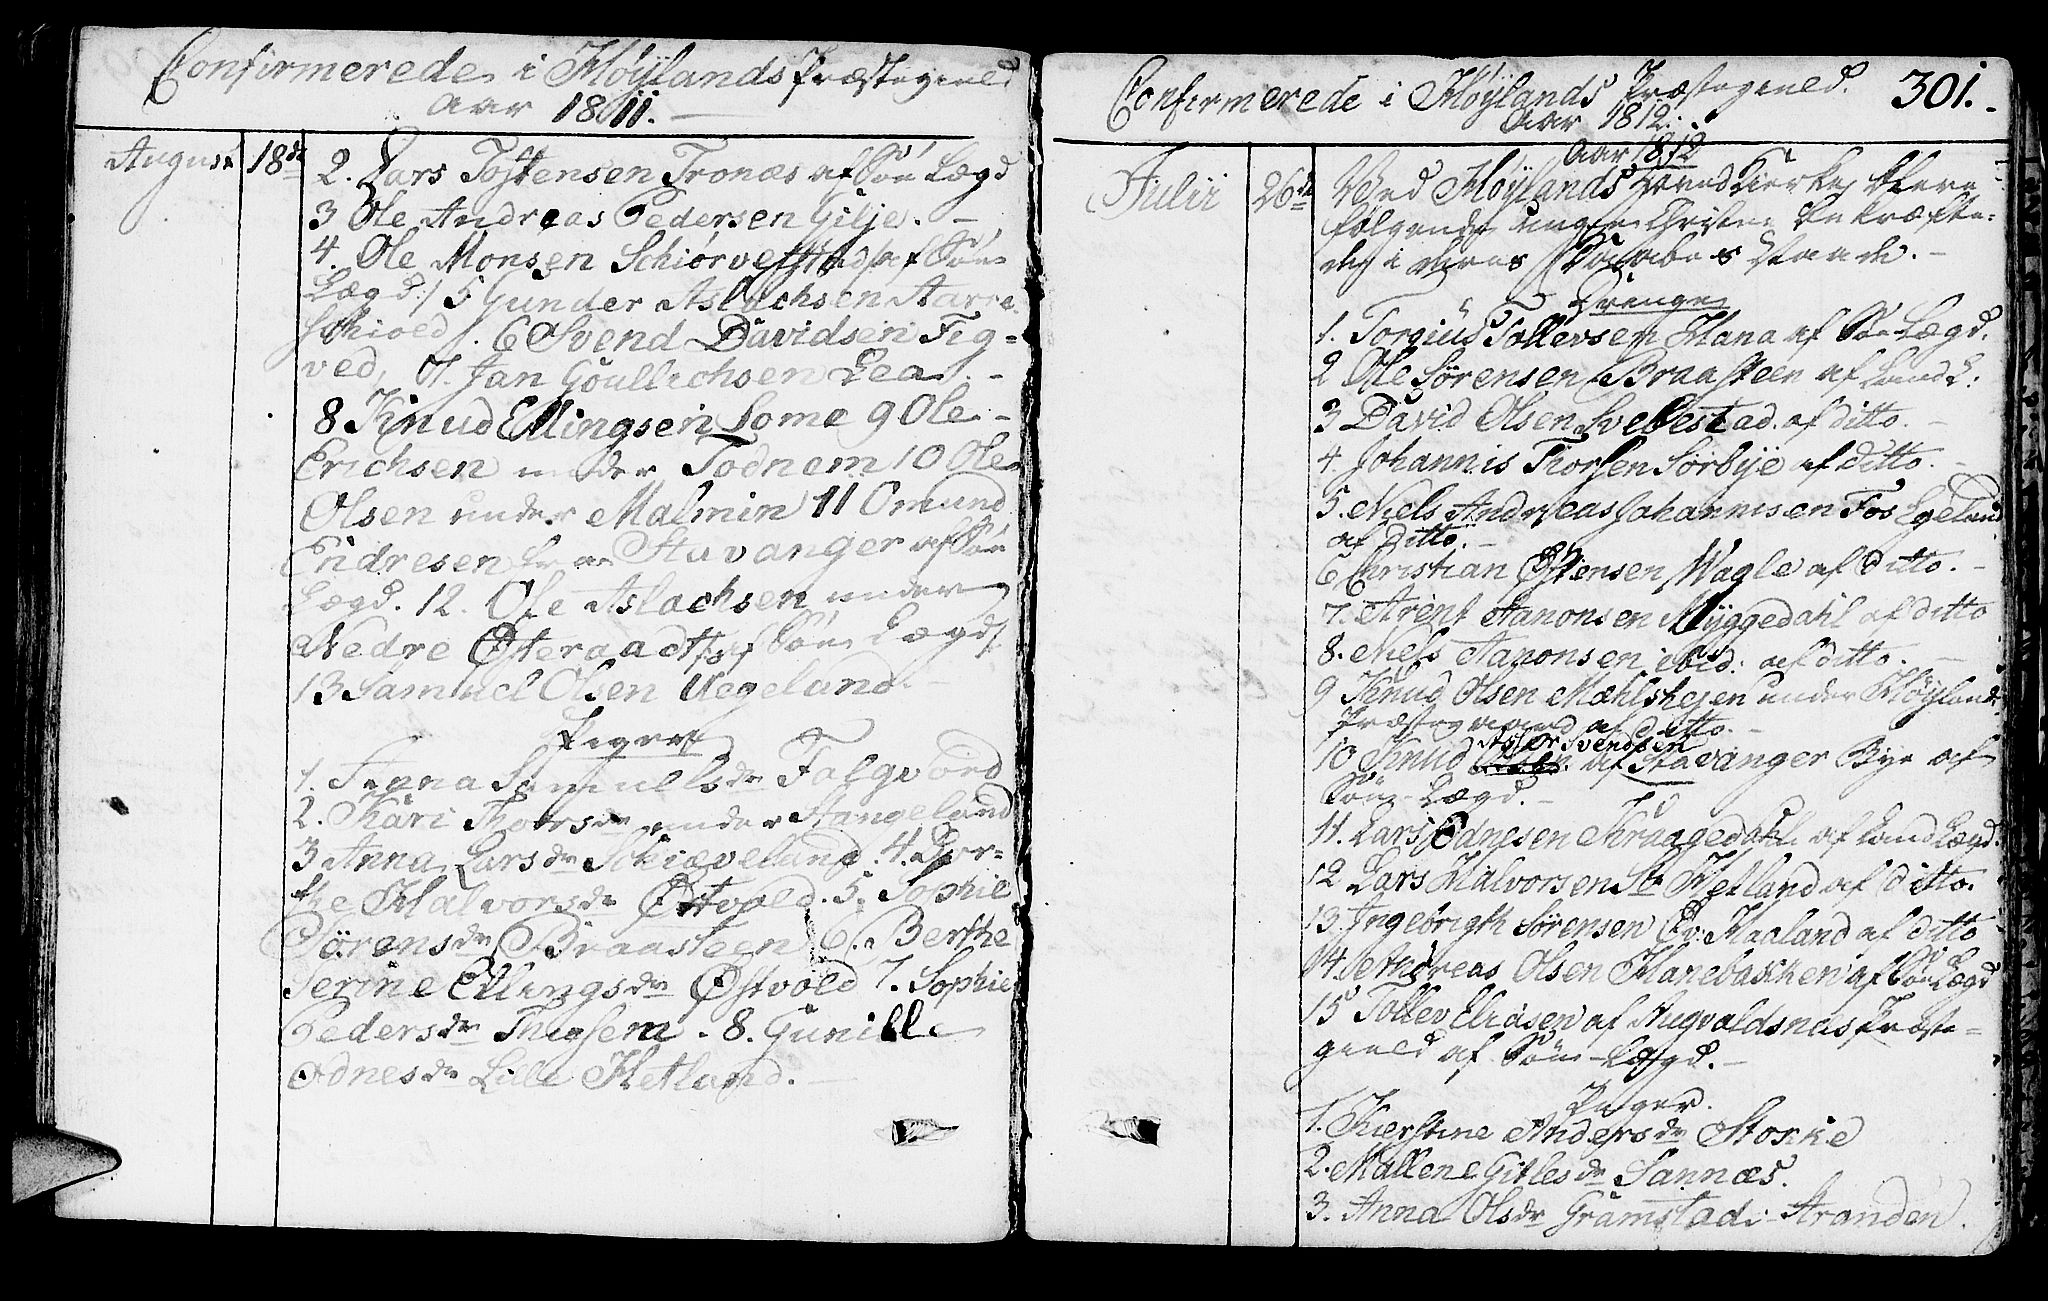 Confirmerede i Høylands Præstegield
Aar 1811.
August 18de
2. Lars Tostensen Tronæs af Søe Lægd
3 Ole Andreas Pedersen Gilje.
4. Ole Monsen Schiørvestad /:af Søe
Lægd:/ 5 Gunder Aslachsen Aarre
schiold. 6 Svend Davidsen Fig-
ved, 7. Jan Goullichsen Lea.
8 Knud Ellingsen Some 9 Ole
Erichsen under Todnem 10 Ole
Olsen under Malmin 11 Omund
Endresen fra Stavanger af Søe
Lægd. 12. Ole Aslachsen under
Nedre Østeraadt /:af Søe Lægd/
13 Samuel Olsen Uegeland.
Piger
1. Anna Samuelsdr Folgerød
2. Kari Thorsdr under Stangeland
3 Anna Larsdr Schiæveland. 4. Dor-
the Halvorsdr Østvold. 5. Sophie
Sørensdr Braasteen 6. Berthe
Serine Ellingsdr Østvold 7. Sophie
Pedersdr Thiosem. 8. Gunille
Ædnesdr Lille Hetland.
Confirmerede i Høylands Præstegield. 301.
Aar 1812.
Aar 1812
Julii 26de
Ved Høylands Hoved Kierke bleve
følgende unge Christne bekræfte-
de i deres Daabes Naade.
Drenge
1. Torgius Tollevsen Hana af Søe Lægd.
2 Ole Sørensen Braasteen af Land L:
3 David Olsen Svebestad. af ditto.
4. Johannis Thorsen Sørbye af ditto.
5. Niels Andreas Johannisen Fos Egeland
af Ditto.
6 Christian Østensen Wagle af ditto.
7. Arent Aanonsen Myggedahl af ditto
8. Niels Aanonsen ibid: af ditto.
9 Knud Olsen Mæhlshejen under Høylands
Præstegaard af ditto.
Aslor Svendsen
10 Knud Olsen. af Stavanger Bye af
Søe-Lægd.
11. Lars Ednesen Skraagedahl af Land Lægd.
12 Lars Halvorsen St Hetland af ditto.
13. Ingebrigth Sørensen Øv: Haaland af ditto
14. Andreas Olsen Hanebacken af Søe Lægd
15 Tollev Eliasen af Augvaldsnæs Præste-
gield af Søe-Lægd.
Piger.
1. Kierstine Andersdr Stokke
2. Mallene Gitlesdr Sannæs.
3. Anna Olsdr Gramstad i Stranden.